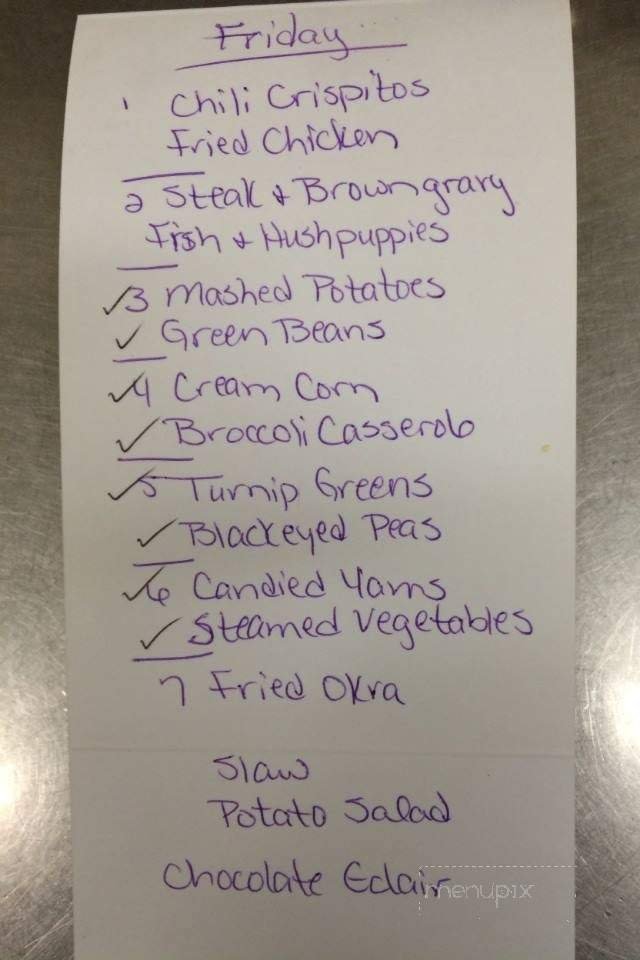 Friday
1 Chili Crispitos
Fried Chicken
2 Steak & Brown gravy
Fish & Hushpuppies
✓3 Mashed Potatoes
✓ Green Beans
✓4 Cream Corn
✓ Broccoli Casserole
✓5 Turnip Greens
✓ Blackeyed Peas
✓6 Candied Yams
✓ Steamed Vegetables
7 Fried Okra
Slaw
Potato Salad
Chocolate Eclair
menupix